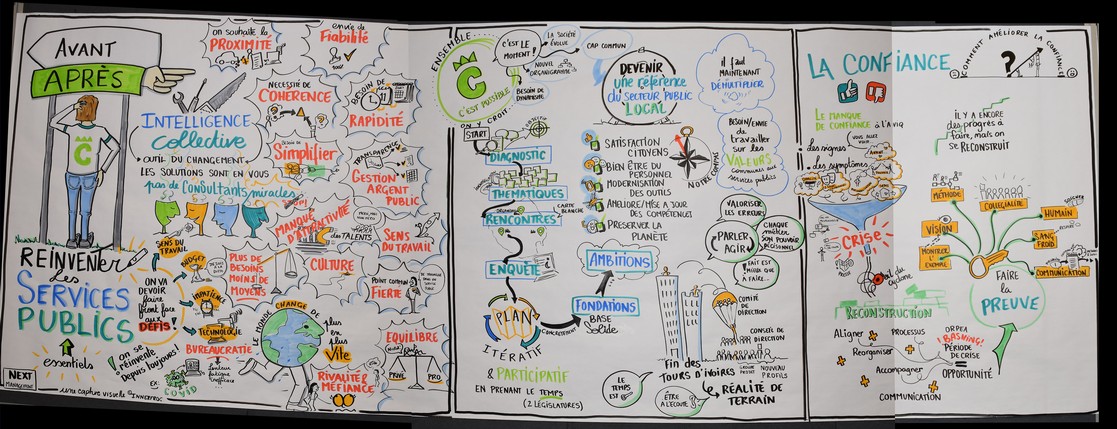 AVANT
APRÈS
on souhaite la
PROXIMITÉ
envie de
Fiabilité
NÉCESSITÉ DE
COHÉRENCE
BESOIN DE
RAPIDITÉ
INTELLIGENCE
collective
OUTIL DU CHANGEMENT
LES SOLUTIONS SONT EN VOUS
pas de consultants miracles
Simplifier
TRANSPARENCE
GESTION
ARGENT
PUBLIC
MANQUE
D'ATTRACTIVITÉ
des TALENTS
SENS
DU TRAVAIL
RÉINVENTER
les
SERVICES
PUBLICS
essentiels
SENS DU
TRAVAIL
ON VA
DEVOIR
faire
front face
aux
DÉFIS!
on se
réinvente
Depuis toujours!
EX:
COVID
BUDGET
IMPATIENCE
TECHNOLOGIE
BUREAUCRATIE
PLUS DE
BESOINS
MOINS DE
MOYENS
CULTURE
POINT COMMUN
FIERTÉ
LE MONDE CHANGE DE
plus
en
plus
vite
ÉQUILIBRE
PRIVÉ
PRO
RIVALITÉ
MÉFIANCE
NEXT
MANAGEMENT
ENSEMBLE
C'EST POSSIBLE
ON Y CROIT
C'EST LE
MOMENT!
LA SOCIÉTÉ
ÉVOLUE
NOUVEL
ORGANIGRAMME
BESOIN DE
DYNAMISME
CAP COMMUN
DEVENIR
une référence
du SECTEUR PUBLIC
LOCAL
il faut
MAINTENANT
DÉMULTIPLIER
START
DIAGNOSTIC
THÉMATIQUES
RENCONTRES
CARTE
BLANCHE
ENQUÊTE
PLAN
ITÉRATIF
& PARTICIPATIF
EN PRENANT LE TEMPS
(2 LÉGISLATURES)
SATISFACTION
CITOYENS
BIEN ÊTRE DU
PERSONNEL
MODERNISATION
DES OUTILS
AMÉLIORE/MISE À JOUR
DES COMPÉTENCES
PRÉSERVER LA
PLANÈTE
AMBITIONS
FONDATIONS
BASE
Solide
CONCRÈTEMENT
BESOIN/ENVIE
de
travailler
sur les
VALEURS
communes aux
services publics
VALORISER
LES ERREURS
PARLER
AGIR
CHAQUE
EMPLOYÉ
SON POUVOIR
DÉCISIONNEL
FAIT EST
MIEUX QUE
À FAIRE...
COMITÉ
DE
DIRECTION
CONSEIL DE
DIRECTION
NOUVEAU
PROFILS
Fin des
TOURS D'IVOIRES
LE
TEMPS
EST
ÊTRE
À L'ÉCOUTE
RÉALITÉ DE
TERRAIN
LA CONFIANCE
COMMENT AMÉLIORER LA CONFIANCE
?
LE MANQUE
DE CONFIANCE
des signes
des symptômes
IL Y A ENCORE
des progrès à
faire, mais on
se RECONSTRUIT
CRISE
œil du
cyclone
MÉTHODE
COLLÉGIALITÉ
HUMAIN
VISION
SANG
FROID
MONTRER
L'EXEMPLE
COMMUNICATION
FAIRE
la
PREUVE
RECONSTRUCTION
Aligner
PROCESSUS
Réorganiser
Accompagner
COMMUNICATION
ORPEA
! BASHING!
PÉRIODE
DE CRISE
=
OPPORTUNITÉ